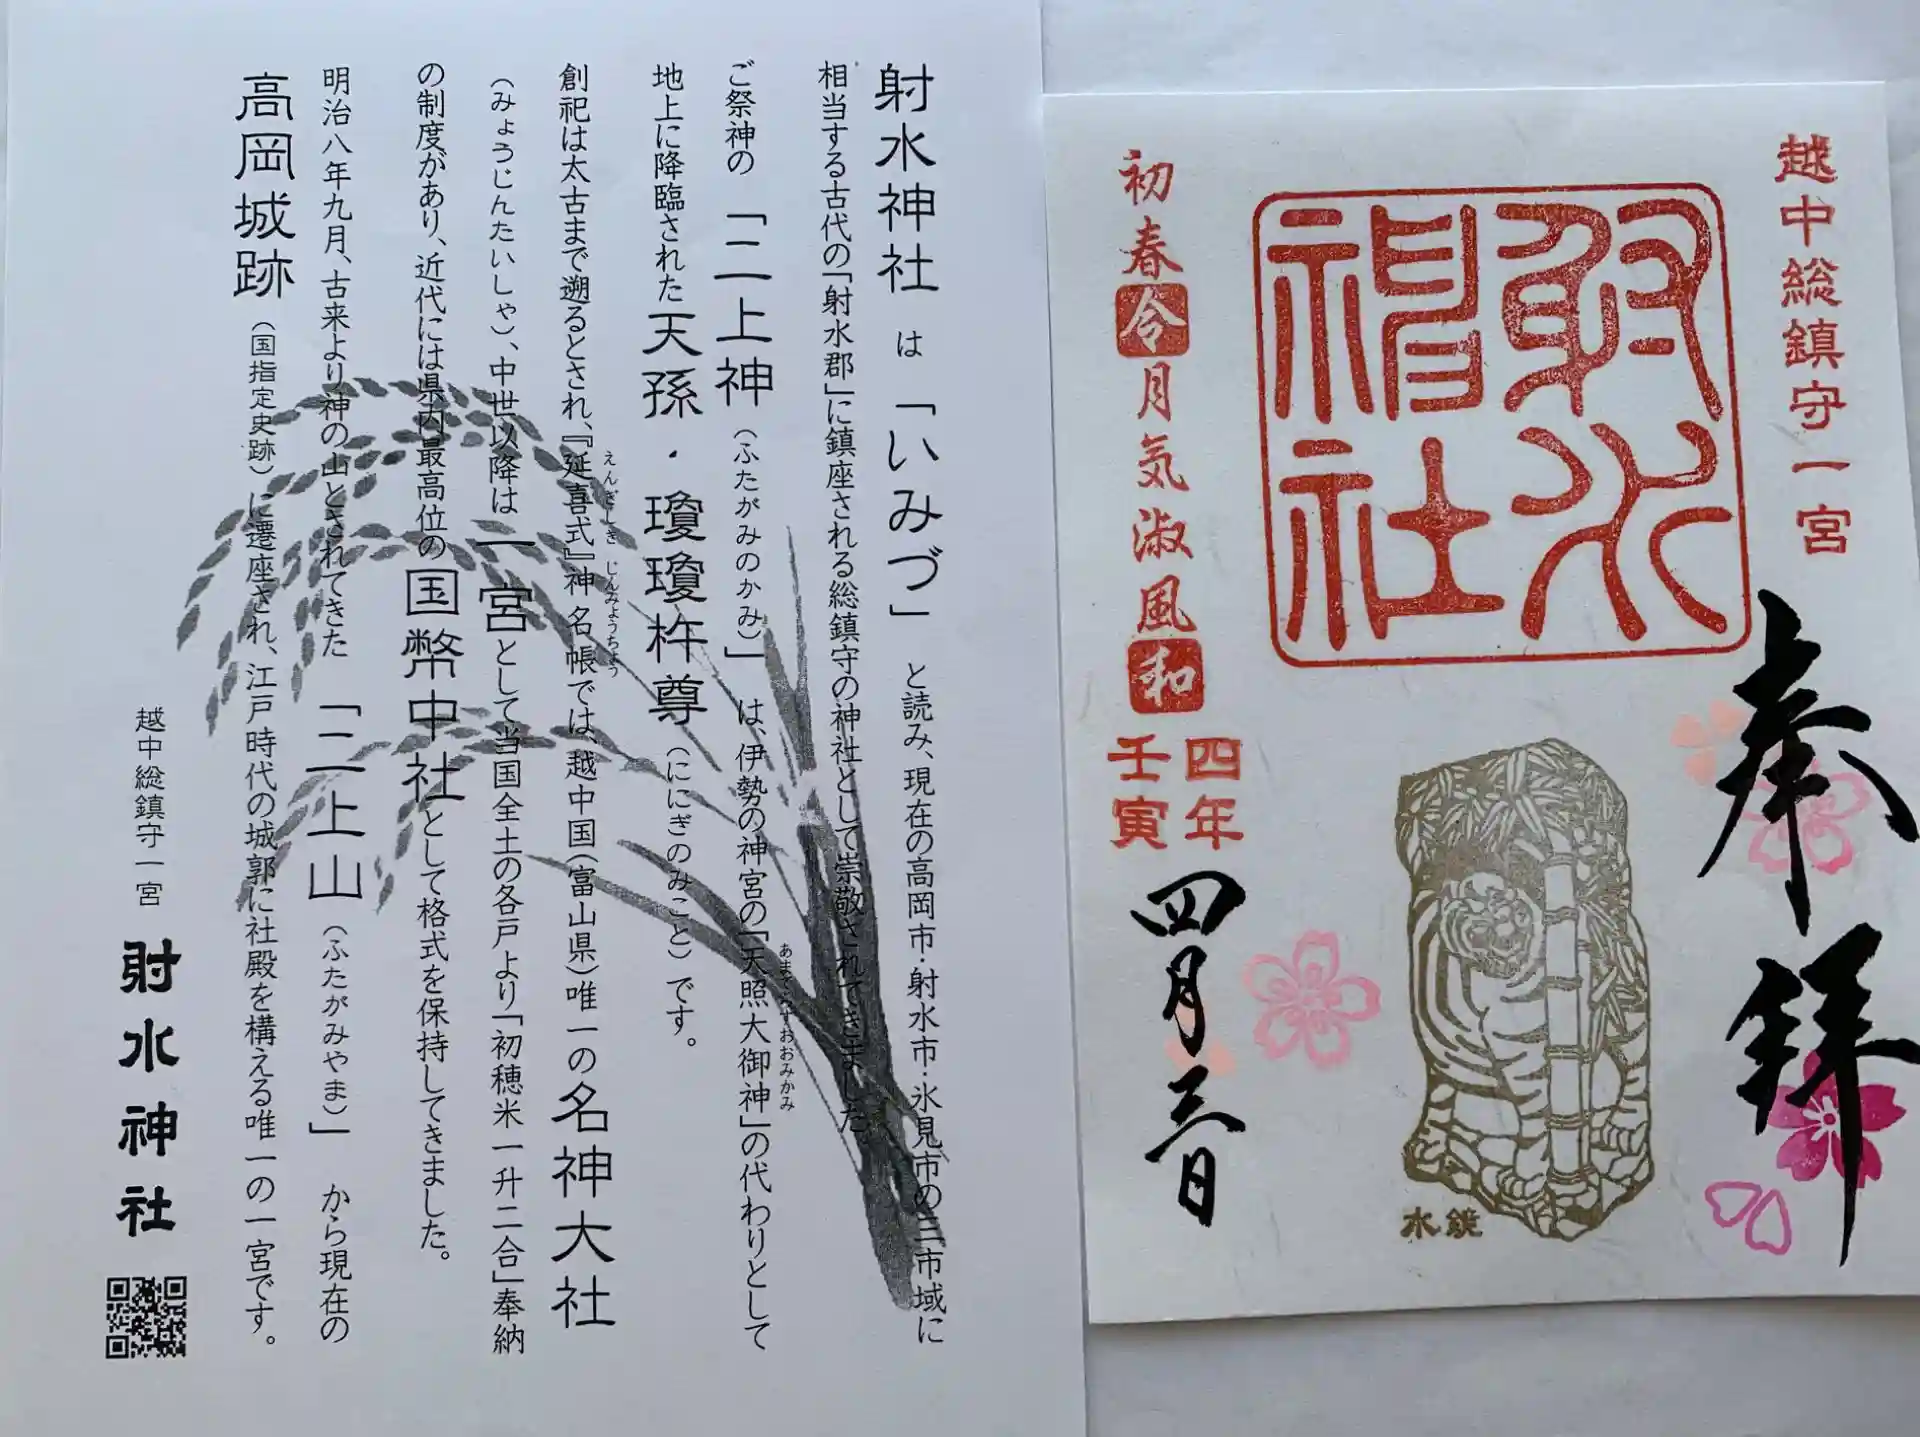 射水神社 は 「いみづ」 と読み、現在の高岡市・射水市・氷見市の三市域に
相当する古代の「射水郡」に鎮座される総鎮守の神社として崇敬されてきました。
ご祭神の 「二上神 (ふたがみのかみ)」 は、伊勢の神宮の「天照大御神」の代わりとして
あまてらすおおみかみ
地上に降臨された 天孫・瓊瓊杵尊 (ににぎのみこと) です。
創祀は太古まで遡るとされ、『延喜式』神名帳では、越中国(富山県)唯一の 名神大社
えんぎしき じんみょうちょう
(みょうじんたいしゃ)、中世以降は 一宮 として当国全土の各戸より「初穂米一升二合」奉納
の制度があり、近代には県内最高位の 国幣中社 として格式を保持してきました。
明治八年九月、古来より神の山とされてきた 「二上山 (ふたがみやま)」 から現在の
高岡城跡 (国指定史跡) に遷座され、江戸時代の城郭に社殿を構える唯一の一宮です。
越中総鎮守一宮 射水神社
越中総鎮守一宮
奉拝
射水神社
水鏡
初春令月気淑風和
四年
壬寅
四月三日